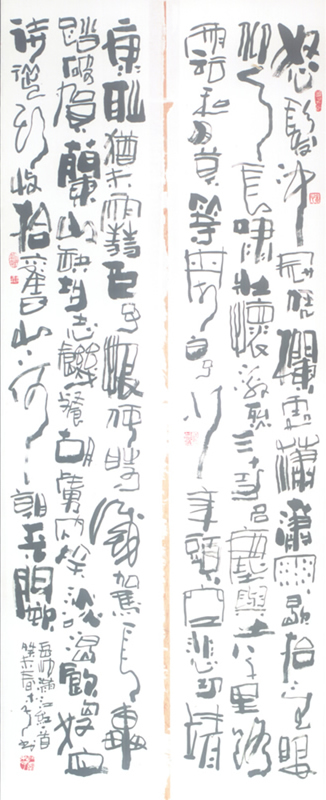 怒髮沖冠憑欄處瀟瀟雨歇抬望眼
仰天長嘯壯懷激烈三十功名塵與土八千里路
雲和月莫等閒白了少年頭空悲切靖
康恥猶未雪臣子恨何時滅駕長車
踏破賀蘭山缺壯志饑餐胡虜肉笑談渴飲匈奴血
待從頭收拾舊山河朝天闕
滿江紅一首
癸未春